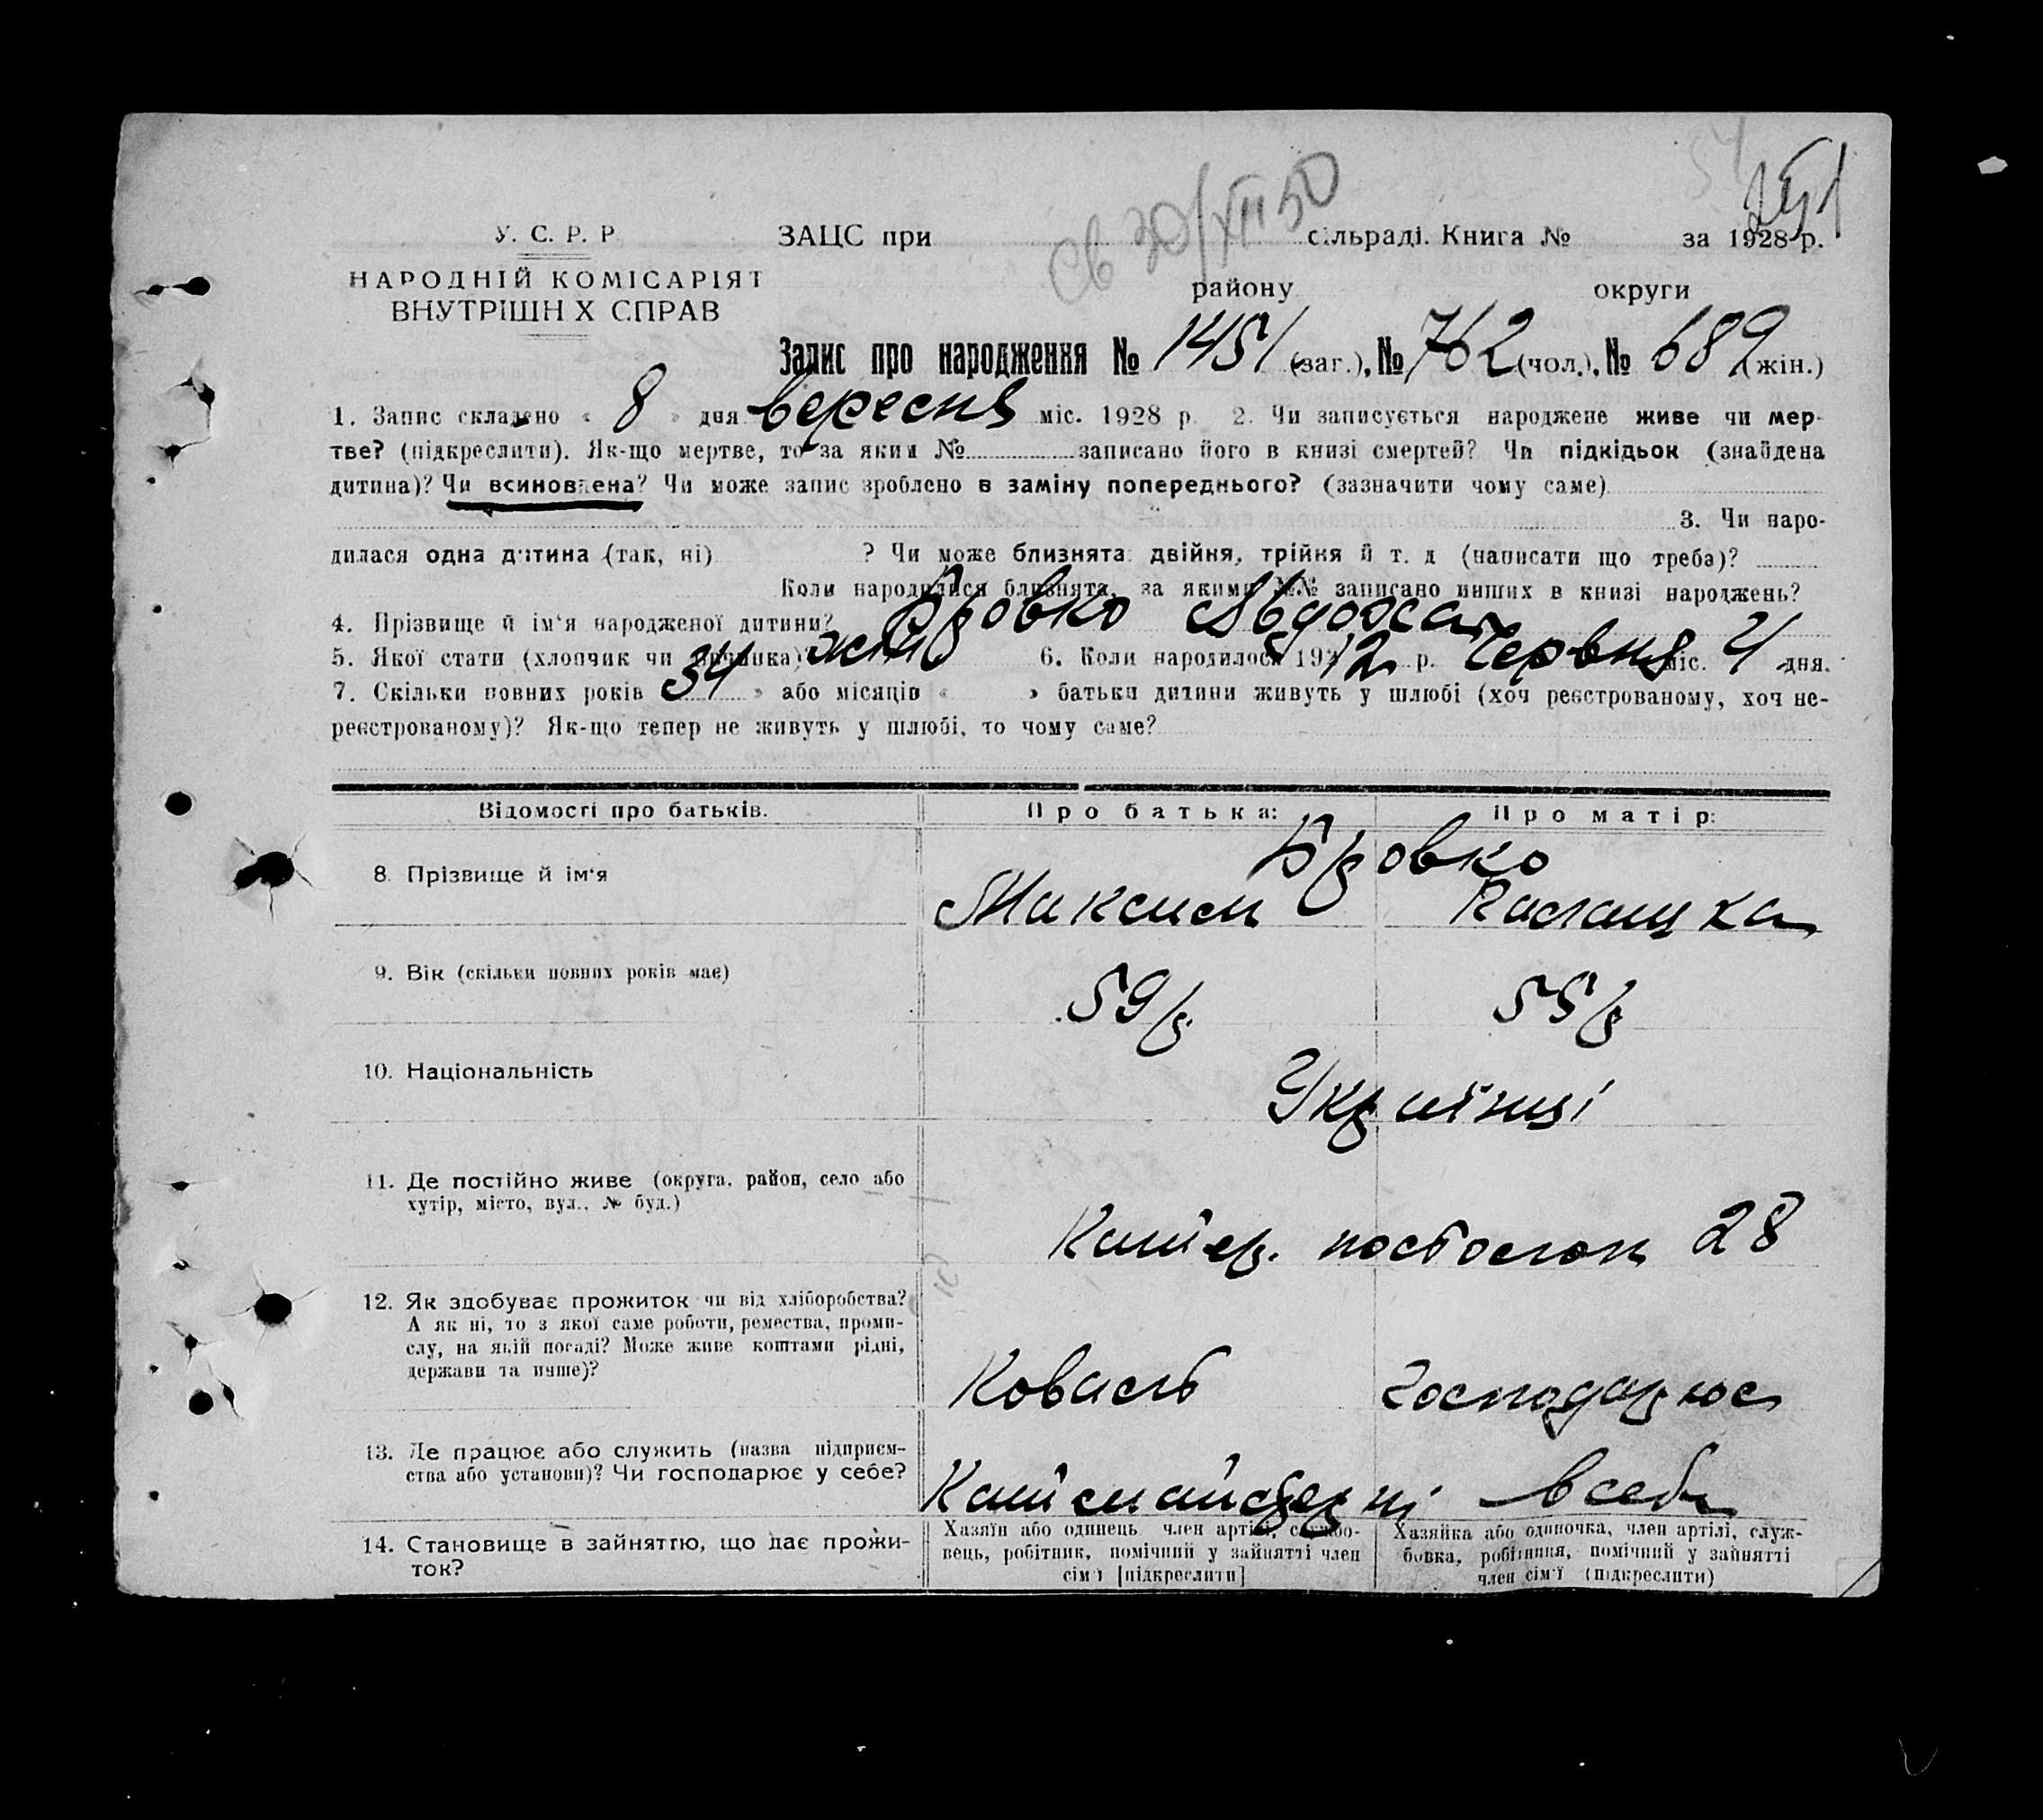 св 30/XII 50
У. С. Р. Р. ЗАЦС при сільраді. Книга № за 1928 р.
НАРОДНІЙ КОМІСАРІЯТ района округи
ВНУТРІШН Х СПРАВ
Запис про народження № 1451 (заг.), № 762 (чол.), № 689 (жін.)
1. Запис складено « 8 » дня вересня міс. 1928 р. 2. Чи записується народжене живе чи мер-
тве? (підкреслити). Як-що мертве, то за яким № записано його в книзі смертей? Чи підкідьок (знайдена
дитина)? Чи всиновлена? Чи може запис зроблено в заміну попереднього? (зазначити чому саме)
3. Чи наро-
дилася одна дитина (так, ні) ? Чи може близнята: двійня, трійня й т. д. (написати що треба)?
Коли народилися близнята, за якими №№ записано инших в книзі народжень?
4. Прізвище й ім'я народженої дитини? Бровко Явдоха
5. Якої стати (хлопчик чи дівчинка)? жін 6. Коли народилося 1912 р. Червня міс. 4 дня.
7. Скільки повних років 34 » або місяців « » батьки дитини живуть у шлюбі (хоч реєстрованому, хоч не-
реєстрованому)? Як-що тепер не живуть у шлюбі, то чому саме?
Відомості про батьків. Про батька: Про матір:
Бровко
8. Прізвище й ім'я Максим Палашка
9. Вік (скільки повних років має) 59 р 55 р
10. Національність Українці
11. Де постійно живе (округа, район, село або
хутір, місто, вул., № буд.)
28
12. Як здобуває прожиток чи від хліборобства? 
А як ні, то з якої саме роботи, ремества, проми-
слу, на якій посаді? Може живе коштами рідні,
держави та инше)?
Коваль Господарює
13. Де працює або служить (назва підприєм-
ства або установи)? Чи господарює у себе?
в себе
14. Становище в зайняттю, що дає прожи-
ток?
Хазяїн або одинець член артілі, службо-
вець, робітник, помічний у зайнятті член
сім'ї [підкреслити]
Хазяйка або одиночка, член артілі, служ-
бовка, робітниця, помічний у зайнятті
член сім'ї (підкреслити)